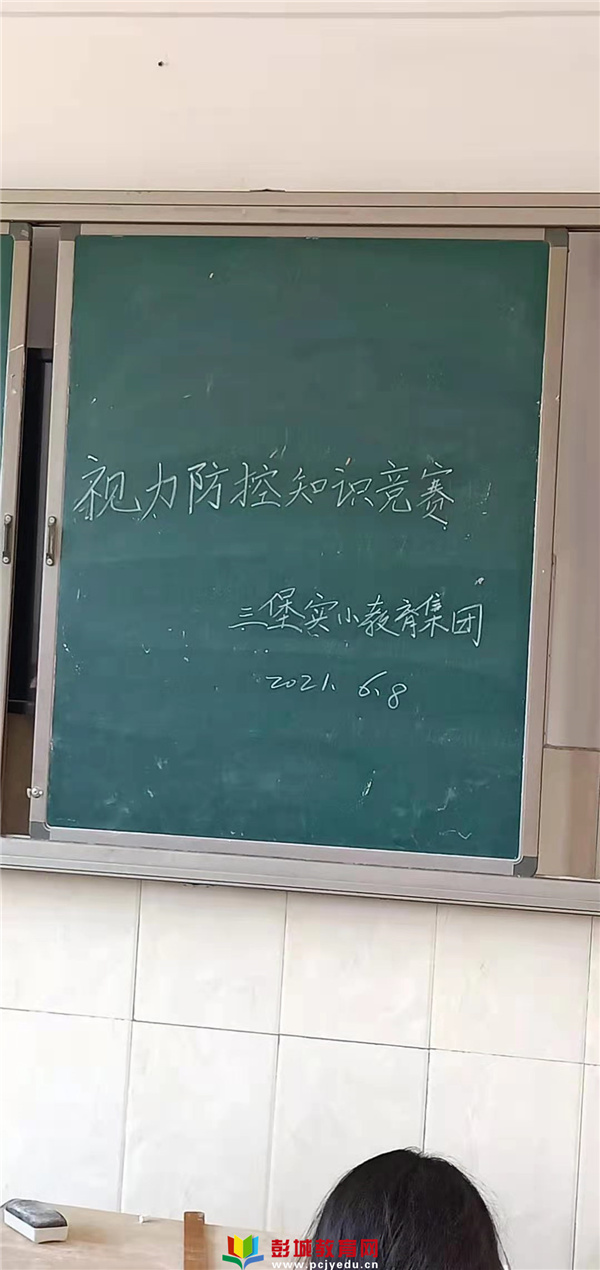 视力防控知识竞赛
三堡实小教育集团
2021.6.8
彭城教育网
www.pcjyedu.cn